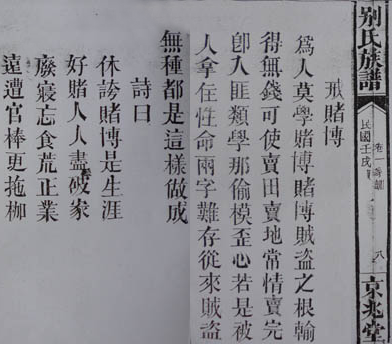 别氏族譜
卷一
民國壬戌
八
京兆堂
戒賭博
爲人莫學賭博賭博賊盜之根輸
得無錢可使賣田賣地常情賣完
卽入匪類學那偷模歪心若是被
人拿住性命兩字難存從來賊盜
無種都是這樣做成
詩曰
休誇賭博是生涯
好賭人人盡破家
廢寢忘食荒正業
遠遭官棒更拖枷